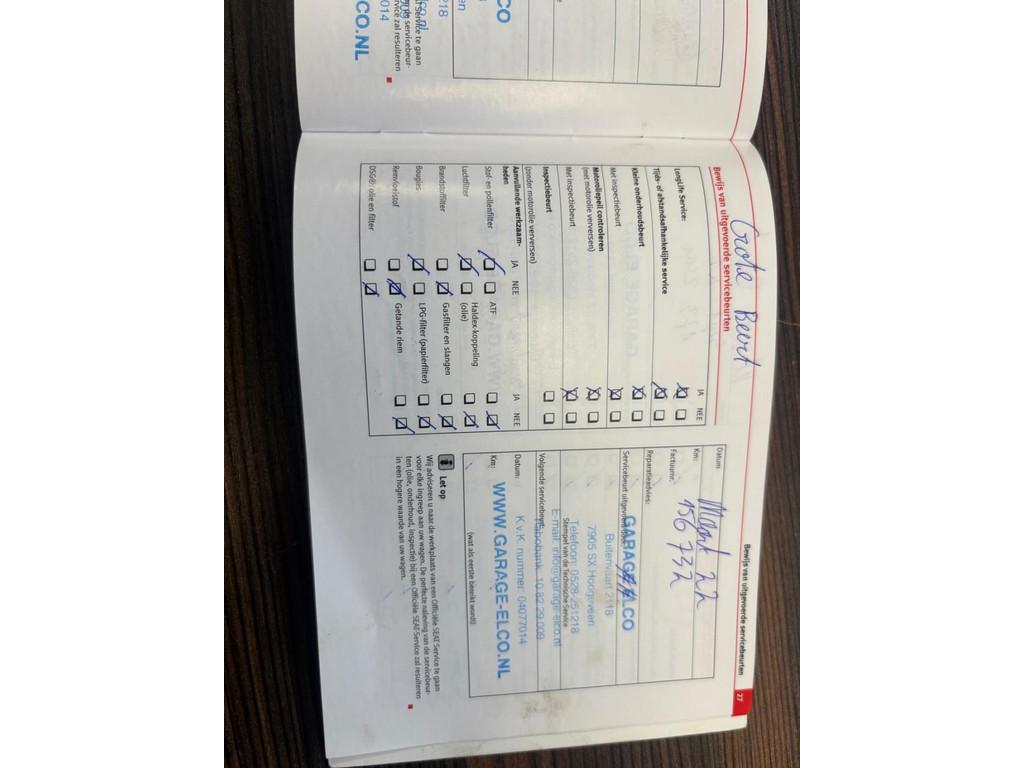 Grote Beurt
Bewijs van uitgevoerde servicebeurten
27
Bewijs van uitgevoerde servicebeurten
JA NEE
LongLife Service:
Tijds- of afstandsafhankelijke service
Kleine onderhoudsbeurt
Met inspectiebeurt
Motoroliepeil controleren
(met motorolie verversen)
Met inspectiebeurt
Inspectiebeurt
(zonder motorolie verversen)
Aanvullende werkzaam-
heden
JA NEE
JA NEE
Stof- en pollenfilter
ATF
Luchtfilter
Haldex-koppeling
(olie)
Brandstoffilter
Gasfilter en slangen
Bougies
LPG-filter (papierfilter)
Remvloeistof
Getande riem
DSG®: olie en filter
Datum
Maart 22
Km:
156 732
Factuurnr.
Reparatieadvies:
Servicebeurt uitgevoerd door:
GARAGE ELCO
Buitenvaart 2118
7905 SX Hoogeveen
Telefoon: 0528-251218
Stempel van de Technische Service
E-mail: info@garage-elco.nl
Rabobank: 10.82.29.009
Volgende servicebeurt:
K.v.K. nummer: 04077014
Datum:
WWW.GARAGE-ELCO.NL
Km:
(wat als eerste bereikt wordt)
Let op
Wij adviseren u naar de werkplaats van een Officiële SEAT Service te gaan
voor elke ingreep aan uw wagen. De perfecte naleving van de servicebeur-
ten (olie, onderhoud, inspectie) bij een Officiële SEAT Service zal resulteren
in een hogere waarde van uw wagen.
CO
218
co.nl
014
CO.NL
Service te gaan
de servicebeur-
rvice zal resulteren